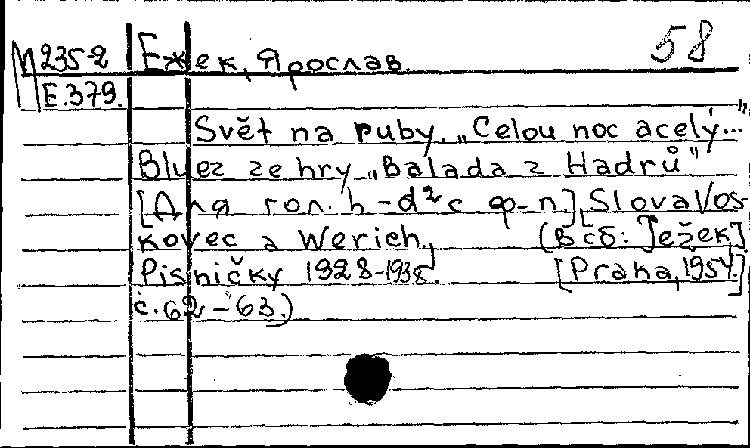 М 235-2 Ежек, Ярослав. 58
Е.379.
Svět na ruby. „Celou noc a celý..."
Bluez ze hry „Balada z Hadrů"
[Для гол. h-d²c ф-п] Slova Vos
kovec a Werich. (В сб: Ježek]
Pisničky 1928-1938. [Praha, 1954.]
č. 62-63.)